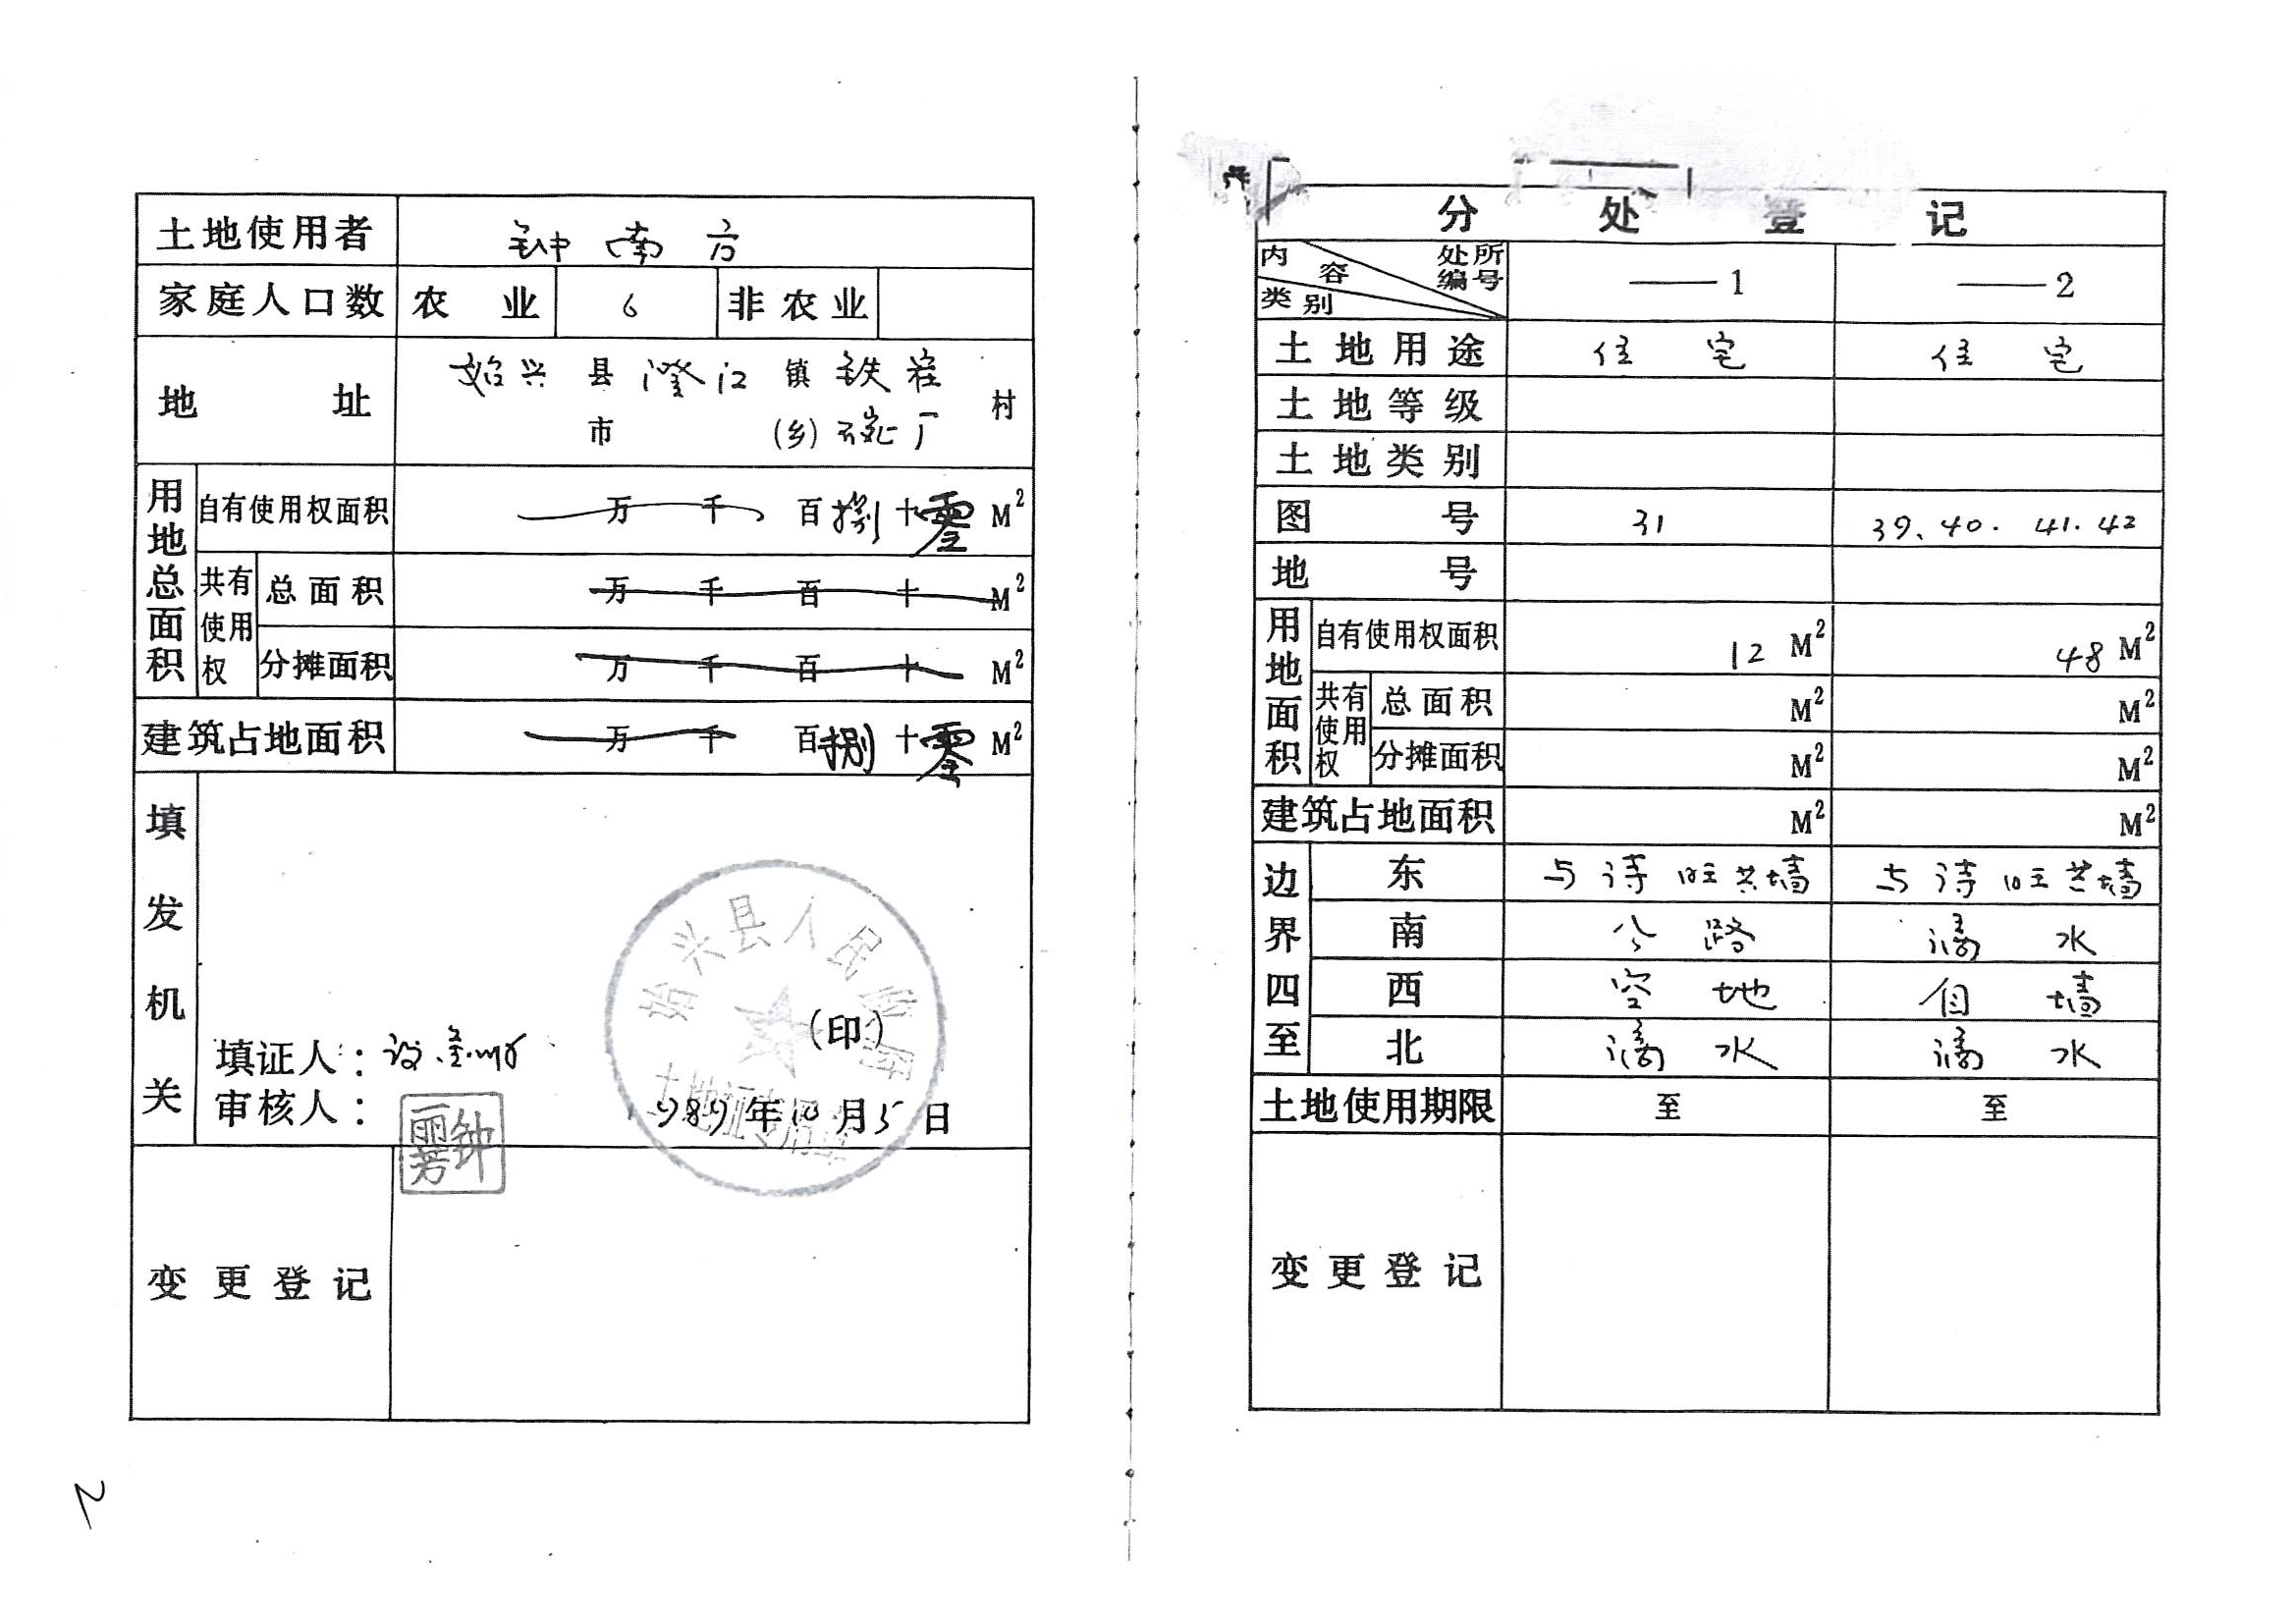 土地使用者 钟南方
家庭人口数 农业 6 非农业
地址 始兴县澄江镇铁寨
市 (乡) 厂 村
用地总面积
自有使用权面积 万 千 百捌十零 M²
共有使用权 总面积 万 千 百 十 M²
分摊面积 万 千 百 十 M²
建筑占地面积 万 千 百捌十零 M²
填发机关
始兴县人民政府
土地证专用章
(印)
填证人:
审核人:
钟丽芳
1989年10月5日
变更登记
2
分处登记
内容 处所编号 类别 ——1 ——2
土地用途 住宅 住宅
土地等级
土地类别
图号 31 39、40. 41.42
地号
用地面积
自有使用权面积 12 M² 48 M²
共有使用权 总面积 M² M²
分摊面积 M² M²
建筑占地面积 M² M²
边界四至
东 与诗旺共墙 与诗旺共墙
南 公路 滴水
西 空地 自墙
北 滴水 滴水
土地使用期限 至 至
变更登记